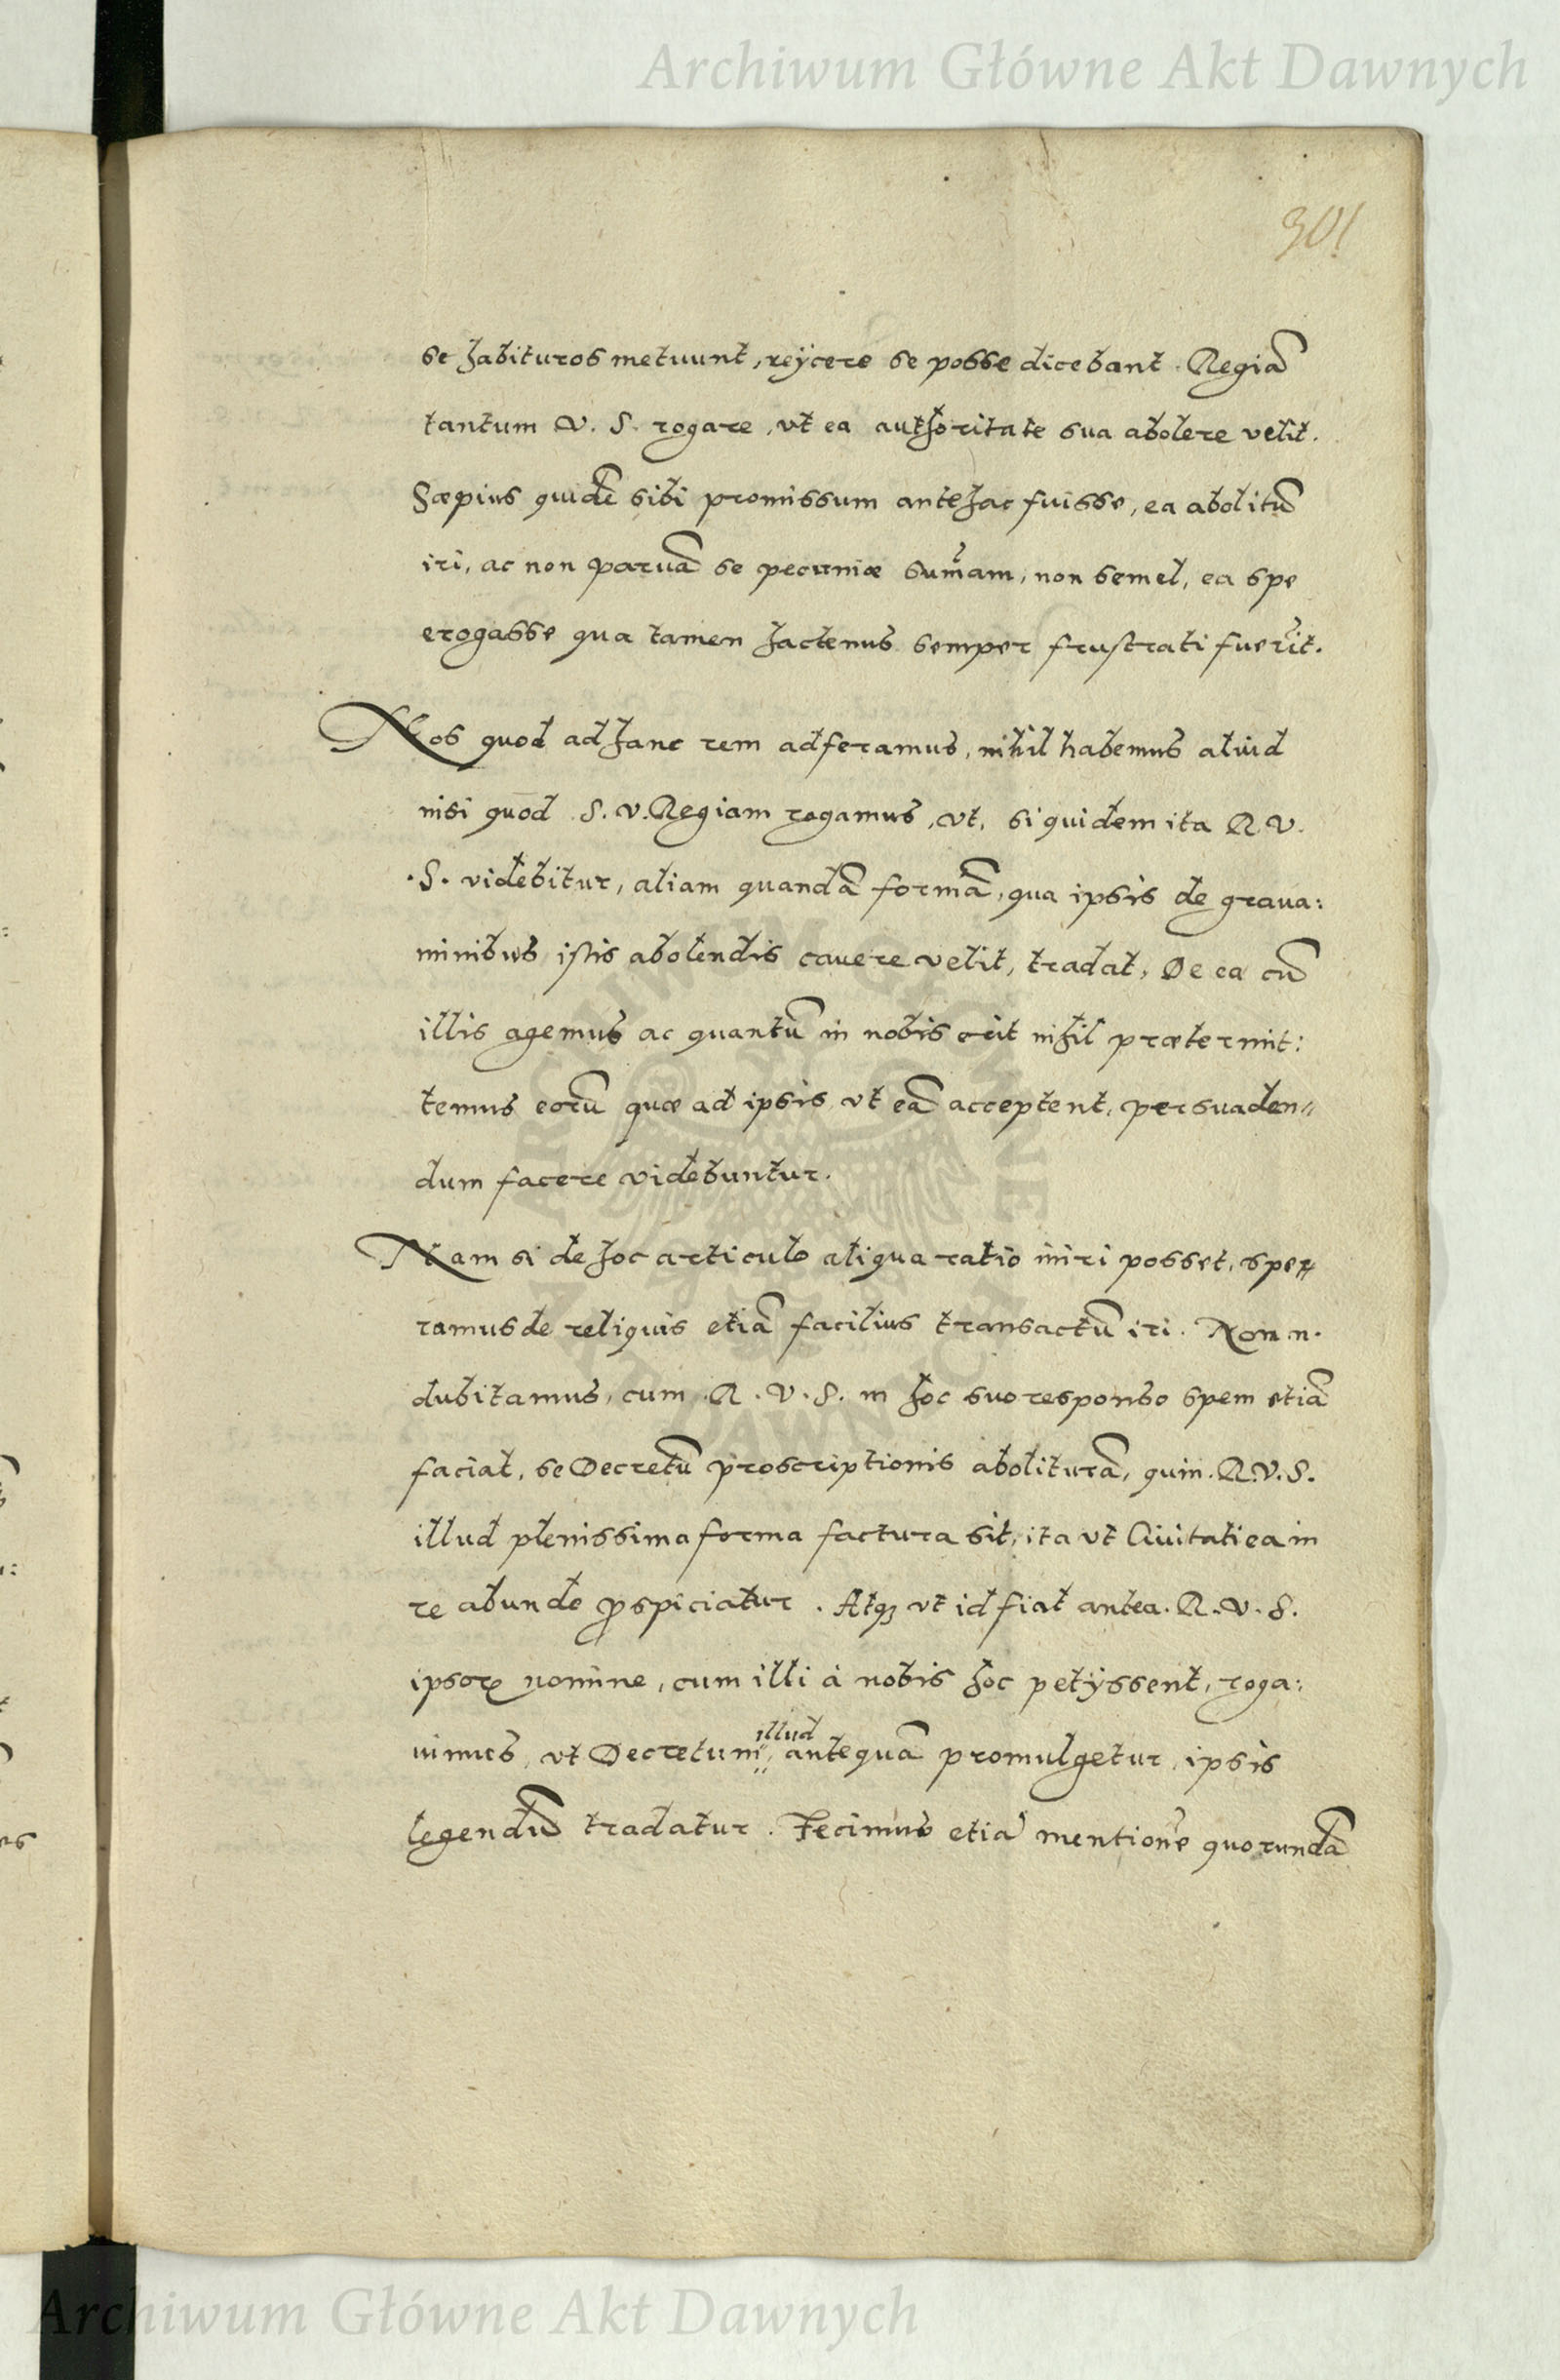 Archiwum Główne Akt Dawnych
301
se habituros metuunt, reÿcere se posse dicebant. Regiã
tantum V. S. rogare, vt ea authoritate sua abolere velit.
Sæpius quidẽ sibi promissum antehac fuisse, ea abolitũ
iri, ac non paruã se pecuniæ sum̃am, non semel, ea spe
erogasse qua tamen hactenus semper frustrati fuerĩt.
Nos quod ad hanc rem adferamus, nihil habemus aliud
nisi quod S. V. Regiam rogamus, vt, siquidem ita R. V.
S. videbitur, aliam quandã formã, qua ipsis de graua:
minibus istis abolendis cauere velit, tradat, De ea cũ
illis agemus ac quantũ in nobis erit nihil prætermit:
temus eorũ quæ ad ipsis vt eã acceptent, persuaden//
dum facere videbuntur.
Nam si de hoc articulo aliqua ratio iniri posset, spe//
ramus de reliquis etiã facilius transactũ iri. Non n.
dubitamus, cum R. V. S. in hoc suo responso spem etiã
faciat, se Decretũ proscriptionis aboliturã, quin R. V. S.
illud plenissima forma factura sit, ita vt Ciuitati ea in
re abunde ꝓspiciatur. Atqꝫ vt id fiat antea R. V. S.
ipsoꝝ nomine, cum illi à nobis hoc petÿssent, roga:
uimus, vt Decretum illud antequã promulgetur, ipsis
legendũ tradatur. Fecimus etiã mentionẽ quorundã
ARCHIWUM GŁÓWNE AKT DAWNYCH
Archiwum Główne Akt Dawnych